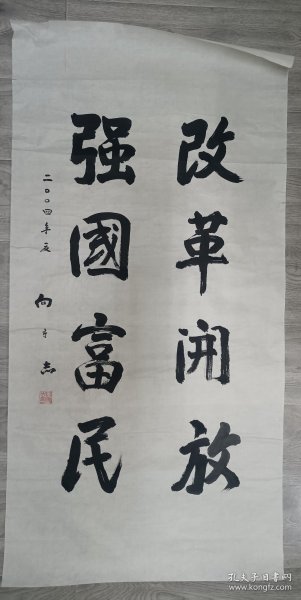 改革開放
强國富民
二〇〇四年夏
向守志
孔夫子旧书网
www.kongfz.com